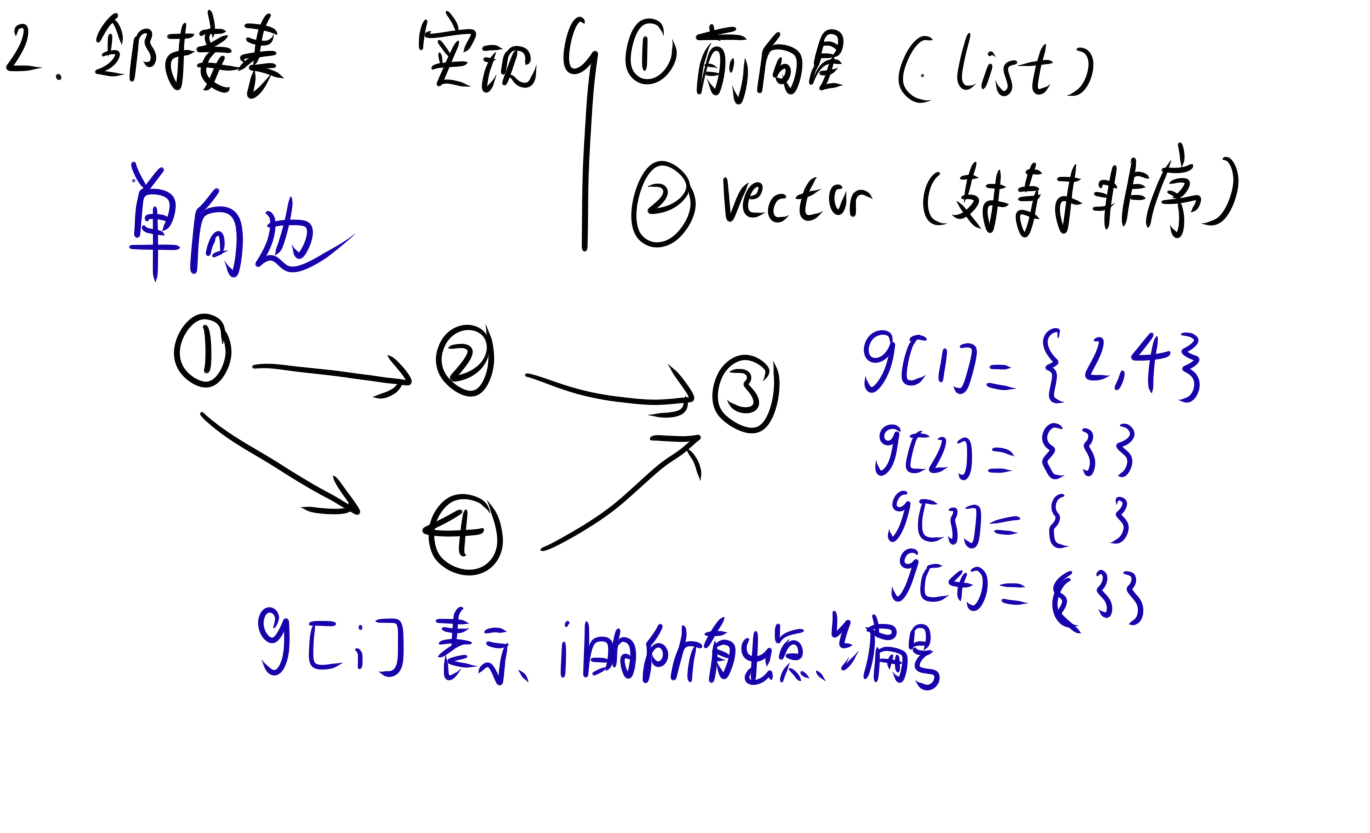 2. 邻接表 实现 ① 前向星 (list)
② vector (支持排序)
单向边
① ② ③
④
g[1] = {2,4}
g[2] = {3}
g[3] = { }
g[4] = {3}
g[i] 表示、i的所有出点、编号